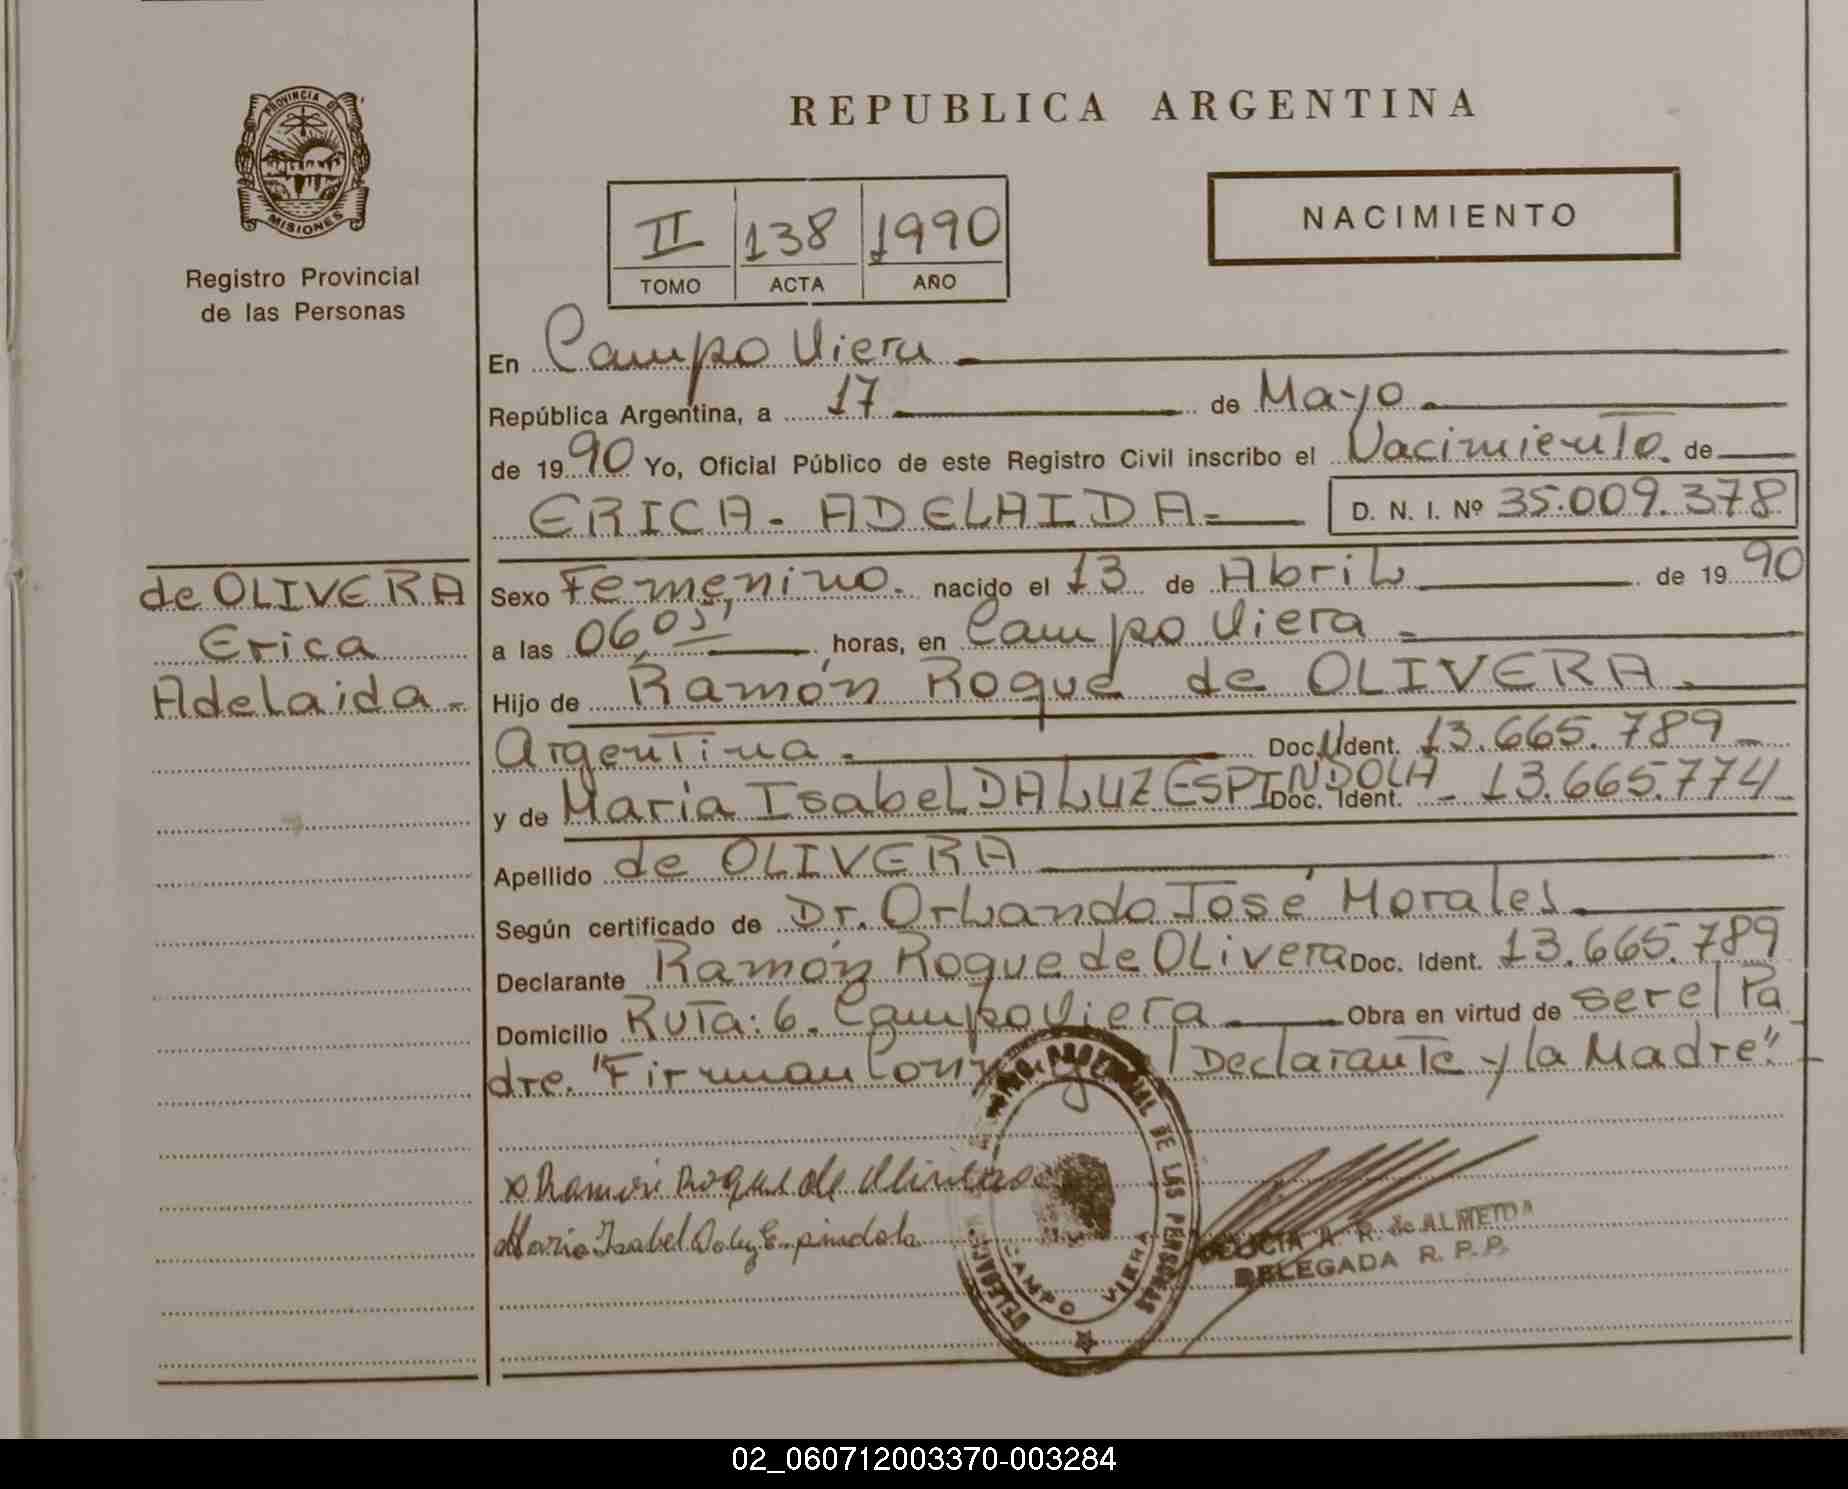 PROVINCIA DE
MISIONES
Registro Provincial
de las Personas
REPUBLICA ARGENTINA
II 138 1990
TOMO ACTA AÑO
NACIMIENTO
En Campo Viera
República Argentina, a 17 de Mayo
de 1990 Yo, Oficial Público de este Registro Civil inscribo el Nacimiento. de
ERICA - ADELAIDA=
D. N. I. Nº 35.009.378
de OLIVERA
Erica
Adelaida.-
Sexo Femenino. nacido el 13 de Abril de 1990
a las 06,05, horas, en Campo Viera
Hijo de Ramón Roque de OLIVERA.
Argentina. Doc. Ident. 13.665.789
y de Maria Isabel DA LUZ ESPINDOLA Doc. Ident. 13.665.774
Apellido de OLIVERA
Según certificado de Dr. Orlando José Morales
Declarante Ramón Roque de Olivera Doc. Ident. 13.665.789
Domicilio Ruta: 6. Campo Viera Obra en virtud de ser el Pa
dre. "Firman Declarante y la Madre".-
x Ramón Roque de Olivera
Maria Isabel Espindola
PROVINCIAL DE LAS PERSONAS
CAMPO VIERA
A. R. de ALMEIDA
DELEGADA R. P. P.
02_060712003370-003284